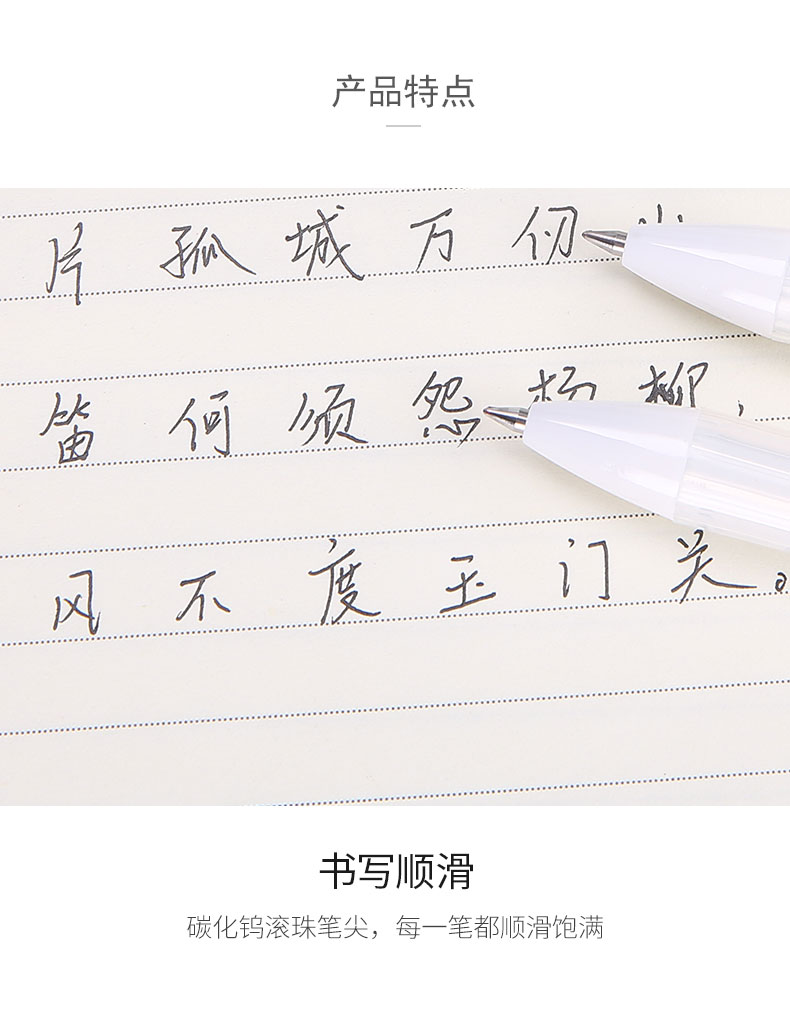 产品特点
片孤城万仞
笛何须怨杨柳，
风不度玉门关。
书写顺滑
碳化钨滚珠笔尖，每一笔都顺滑饱满